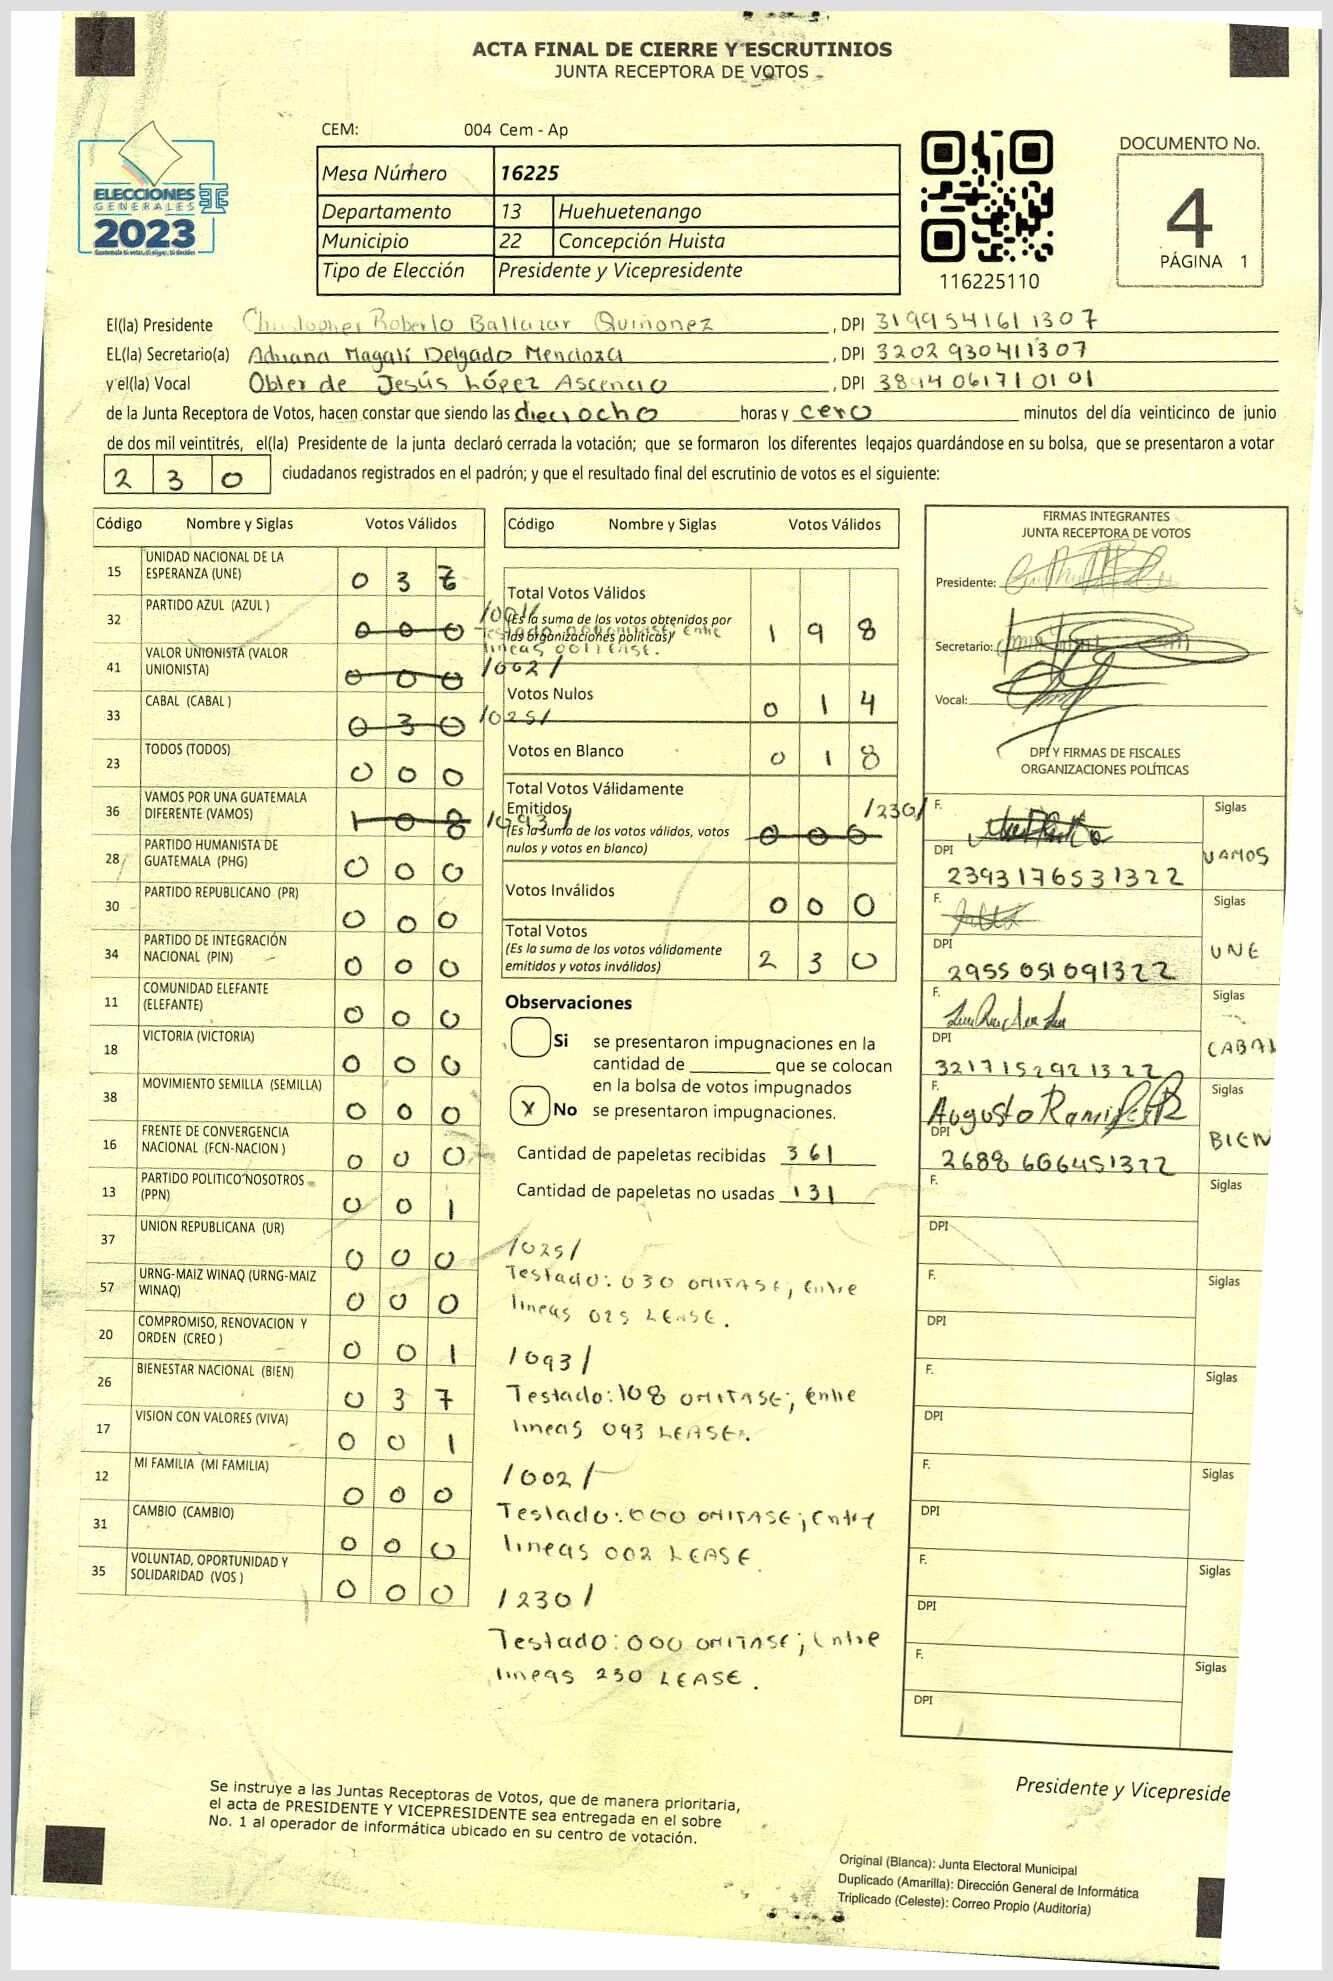 ACTA FINAL DE CIERRE Y ESCRUTINIOS
JUNTA RECEPTORA DE VOTOS
ELECCIONES
GENERALES
2023
CEM: 004 Cem - Ap
Mesa Número 16225
Departamento 13 Huehuetenango
Municipio 22 Concepción Huista
Tipo de Elección Presidente y Vicepresidente
116225110
DOCUMENTO No.
4
PÁGINA 1
El(la) Presidente Christopher Roberto Baltazar Quiñonez, DPI 3199541611307
EL(la) Secretario(a) Adriana Magalí Delgado Mendoza, DPI 3202930411307
y el(la) Vocal Obler de Jesús López Ascencio, DPI 3894061710101
de la Junta Receptora de Votos, hacen constar que siendo las dieciocho horas y cero minutos del día veinticinco de junio
de dos mil veintitrés, el(la) Presidente de la junta declaró cerrada la votación; que se formaron los diferentes legajos guardándose en su bolsa, que se presentaron a votar
230 ciudadanos registrados en el padrón; y que el resultado final del escrutinio de votos es el siguiente:
Código Nombre y Siglas Votos Válidos
15 UNIDAD NACIONAL DE LA ESPERANZA (UNE) 0 3
32 PARTIDO AZUL (AZUL) 0 0 0 /001/
41 VALOR UNIONISTA (VALOR UNIONISTA) 0 0 0 /002/
33 CABAL (CABAL) 0 3 0 /025/
23 TODOS (TODOS) 0 0 0
36 VAMOS POR UNA GUATEMALA DIFERENTE (VAMOS) 1 0 8 /093/
28 PARTIDO HUMANISTA DE GUATEMALA (PHG) 0 0 0
30 PARTIDO REPUBLICANO (PR) 0 0 0
34 PARTIDO DE INTEGRACIÓN NACIONAL (PIN) 0 0 0
11 COMUNIDAD ELEFANTE (ELEFANTE) 0 0 0
18 VICTORIA (VICTORIA) 0 0 0
38 MOVIMIENTO SEMILLA (SEMILLA) 0 0 0
16 FRENTE DE CONVERGENCIA NACIONAL (FCN-NACION) 0 0 0
13 PARTIDO POLITICO NOSOTROS (PPN) 0 0 1
37 UNION REPUBLICANA (UR) 0 0 0
57 URNG-MAIZ WINAQ (URNG-MAIZ WINAQ) 0 0 0
20 COMPROMISO, RENOVACION Y ORDEN (CREO) 0 0 1
26 BIENESTAR NACIONAL (BIEN) 0 3 7
17 VISION CON VALORES (VIVA) 0 0 1
12 MI FAMILIA (MI FAMILIA) 0 0 0
31 CAMBIO (CAMBIO) 0 0 0
35 VOLUNTAD, OPORTUNIDAD Y SOLIDARIDAD (VOS) 0 0 0
Código Nombre y Siglas Votos Válidos
Total Votos Válidos
(Es la suma de los votos obtenidos por
las organizaciones políticas) 1 9 8
Testado: 000 OMITASE; Entre
lineas 001 LEASE.
Votos Nulos 0 1 4
Votos en Blanco 0 1 8
Total Votos Válidamente
Emitidos
(Es la suma de los votos válidos, votos
nulos y votos en blanco) 0 0 0 /230/
Votos Inválidos 0 0 0
Total Votos
(Es la suma de los votos válidamente
emitidos y votos inválidos) 2 3 0
Observaciones
Si se presentaron impugnaciones en la
cantidad de ________ que se colocan
en la bolsa de votos impugnados
X No se presentaron impugnaciones.
Cantidad de papeletas recibidas 361
Cantidad de papeletas no usadas 131
/025/
Testado: 030 OMITASE; Entre
lineas 025 LEASE.
/093/
Testado: 108 OMITASE; Entre
lineas 093 LEASE.
/002/
Testado: 000 OMITASE; Entre
lineas 002 LEASE.
/230/
Testado: 000 OMITASE; Entre
lineas 230 LEASE.
FIRMAS INTEGRANTES
JUNTA RECEPTORA DE VOTOS
Presidente:
Secretario:
Vocal:
DPI Y FIRMAS DE FISCALES
ORGANIZACIONES POLÍTICAS
F. Siglas
DPI 2393176531322 VAMOS
F. Siglas
DPI 2955051091322 UNE
F. Siglas
DPI 3217152921322 CABAL
F. Augusto Ramirez Siglas
DPI 2688606451322 BIEN
F. Siglas
DPI
F. Siglas
DPI
F. Siglas
DPI
F. Siglas
DPI
F. Siglas
DPI
F. Siglas
DPI
Presidente y Vicepreside
Se instruye a las Juntas Receptoras de Votos, que de manera prioritaria,
el acta de PRESIDENTE Y VICEPRESIDENTE sea entregada en el sobre
No. 1 al operador de informática ubicado en su centro de votación.
Original (Blanca): Junta Electoral Municipal
Duplicado (Amarilla): Dirección General de Informática
Triplicado (Celeste): Correo Propio (Auditoría)